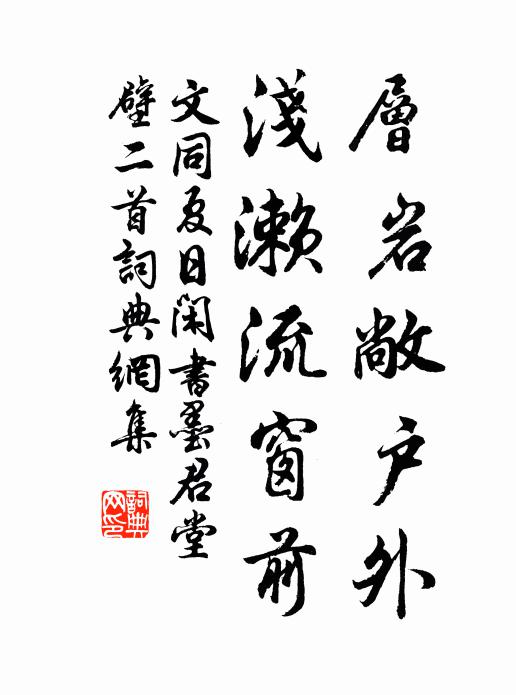 層岩敞户外
淺瀨流窗前
文同夏日閑書墨君堂
壁二首詞典網集
詞典
网印